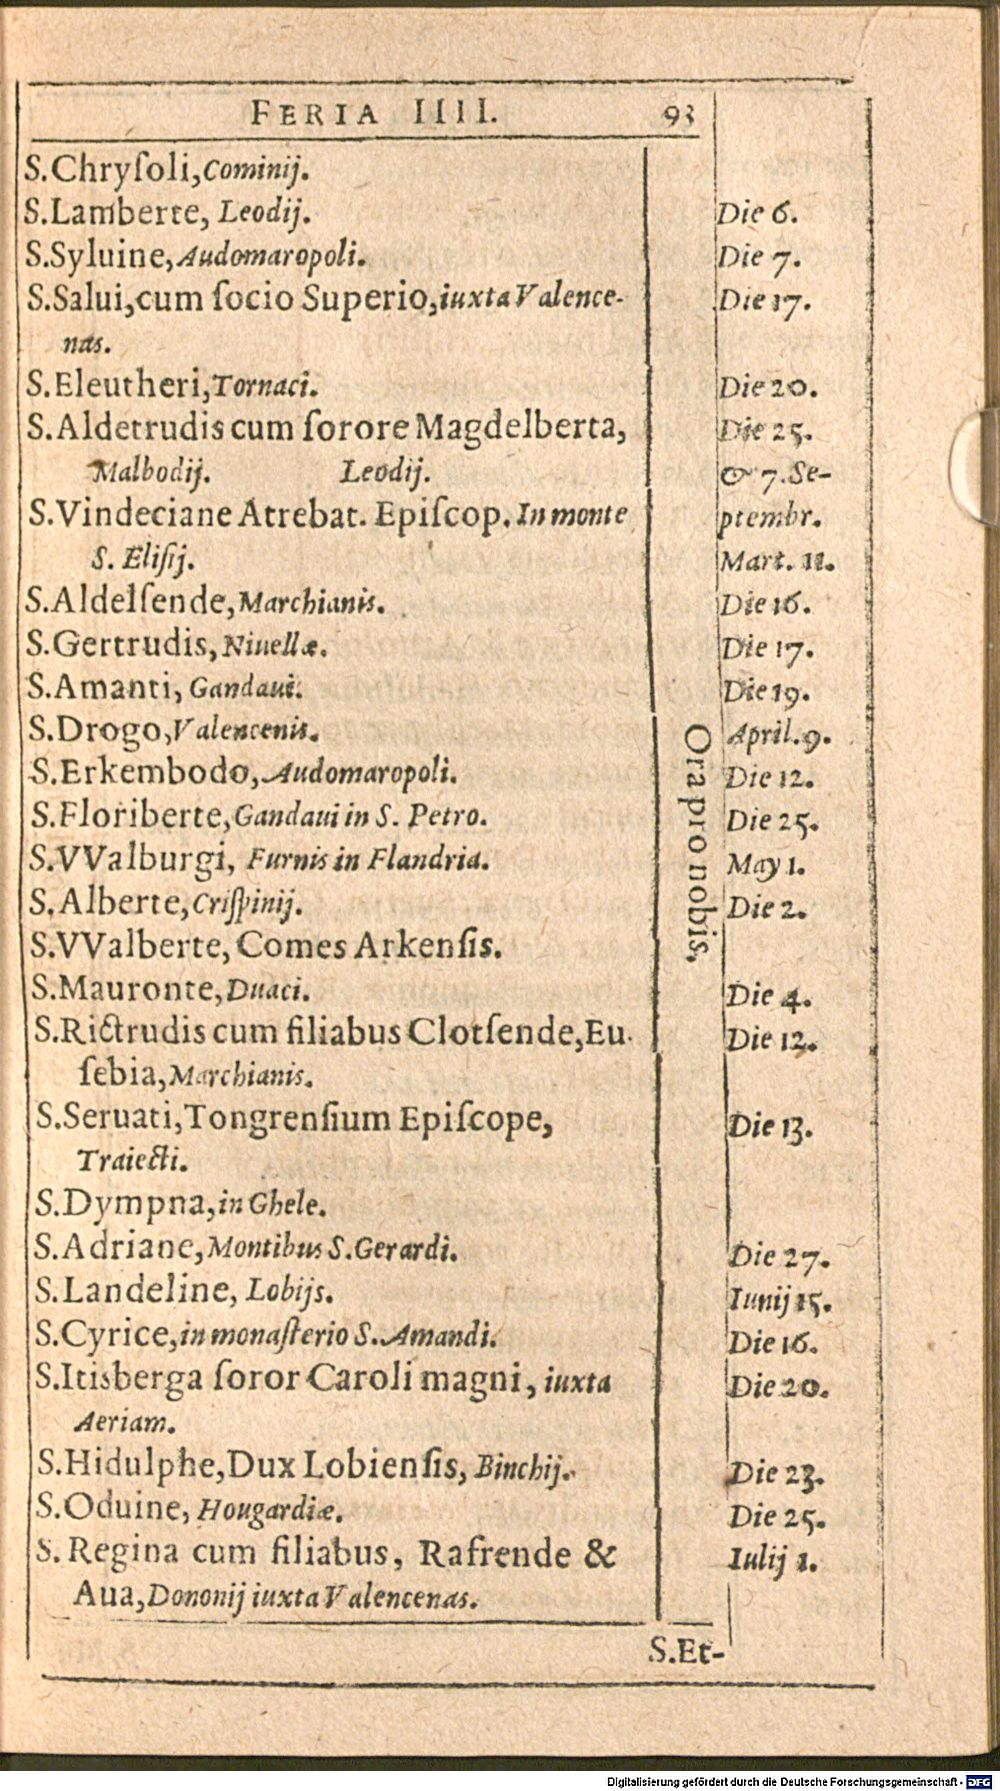 FERIA IIII. 93
S.Chryſoli,Cominij.
S.Lamberte, Leodij. Die 6.
S.Syluine,Audomaropoli. Die 7.
S.Salui,cum ſocio Superio,iuxta Valence- Die 17.
nas.
S.Eleutheri,Tornaci. Die 20.
S.Aldetrudis cum ſorore Magdelberta, Die 25.
Malbodij. Leodij. & 7.Se-
S.Vindeciane Atrebat. Epiſcop. In monte ptembr.
S. Eliſij. Mart. 11.
S.Aldelſende,Marchianis. Die 16.
S.Gertrudis,Niuellæ. Die 17.
S.Amanti, Gandaui. Die 19.
S.Drogo,Valencenis. April.9.
S.Erkembodo,Audomaropoli. Die 12.
S.Floriberte,Gandaui in S. Petro. Die 25.
S.VValburgi, Furnis in Flandria. May 1.
S.Alberte,Criſpinij. Die 2.
S.VValberte, Comes Arkenſis.
S.Mauronte,Duaci. Die 4.
S.Rictrudis cum filiabus Clotſende,Eu- Die 12.
ſebia,Marchianis.
S.Seruati,Tongrenſium Epiſcope, Die 13.
Traiecti.
S.Dympna,in Ghele.
S.Adriane,Montibus S.Gerardi. Die 27.
S.Landeline, Lobijs. Iunij 15.
S.Cyrice,in monaſterio S.Amandi. Die 16.
S.Itisberga ſoror Caroli magni, iuxta Die 20.
Aeriam.
S.Hidulphe,Dux Lobienſis, Binchij. Die 23.
S.Oduine, Hougardiæ. Die 25.
S.Regina cum filiabus, Rafrende & Iulij 1.
Aua,Dononij iuxta Valencenas.
Ora pro nobis,
S.Et-
Digitalisierung gefördert durch die Deutsche Forschungsgemeinschaft - DFG